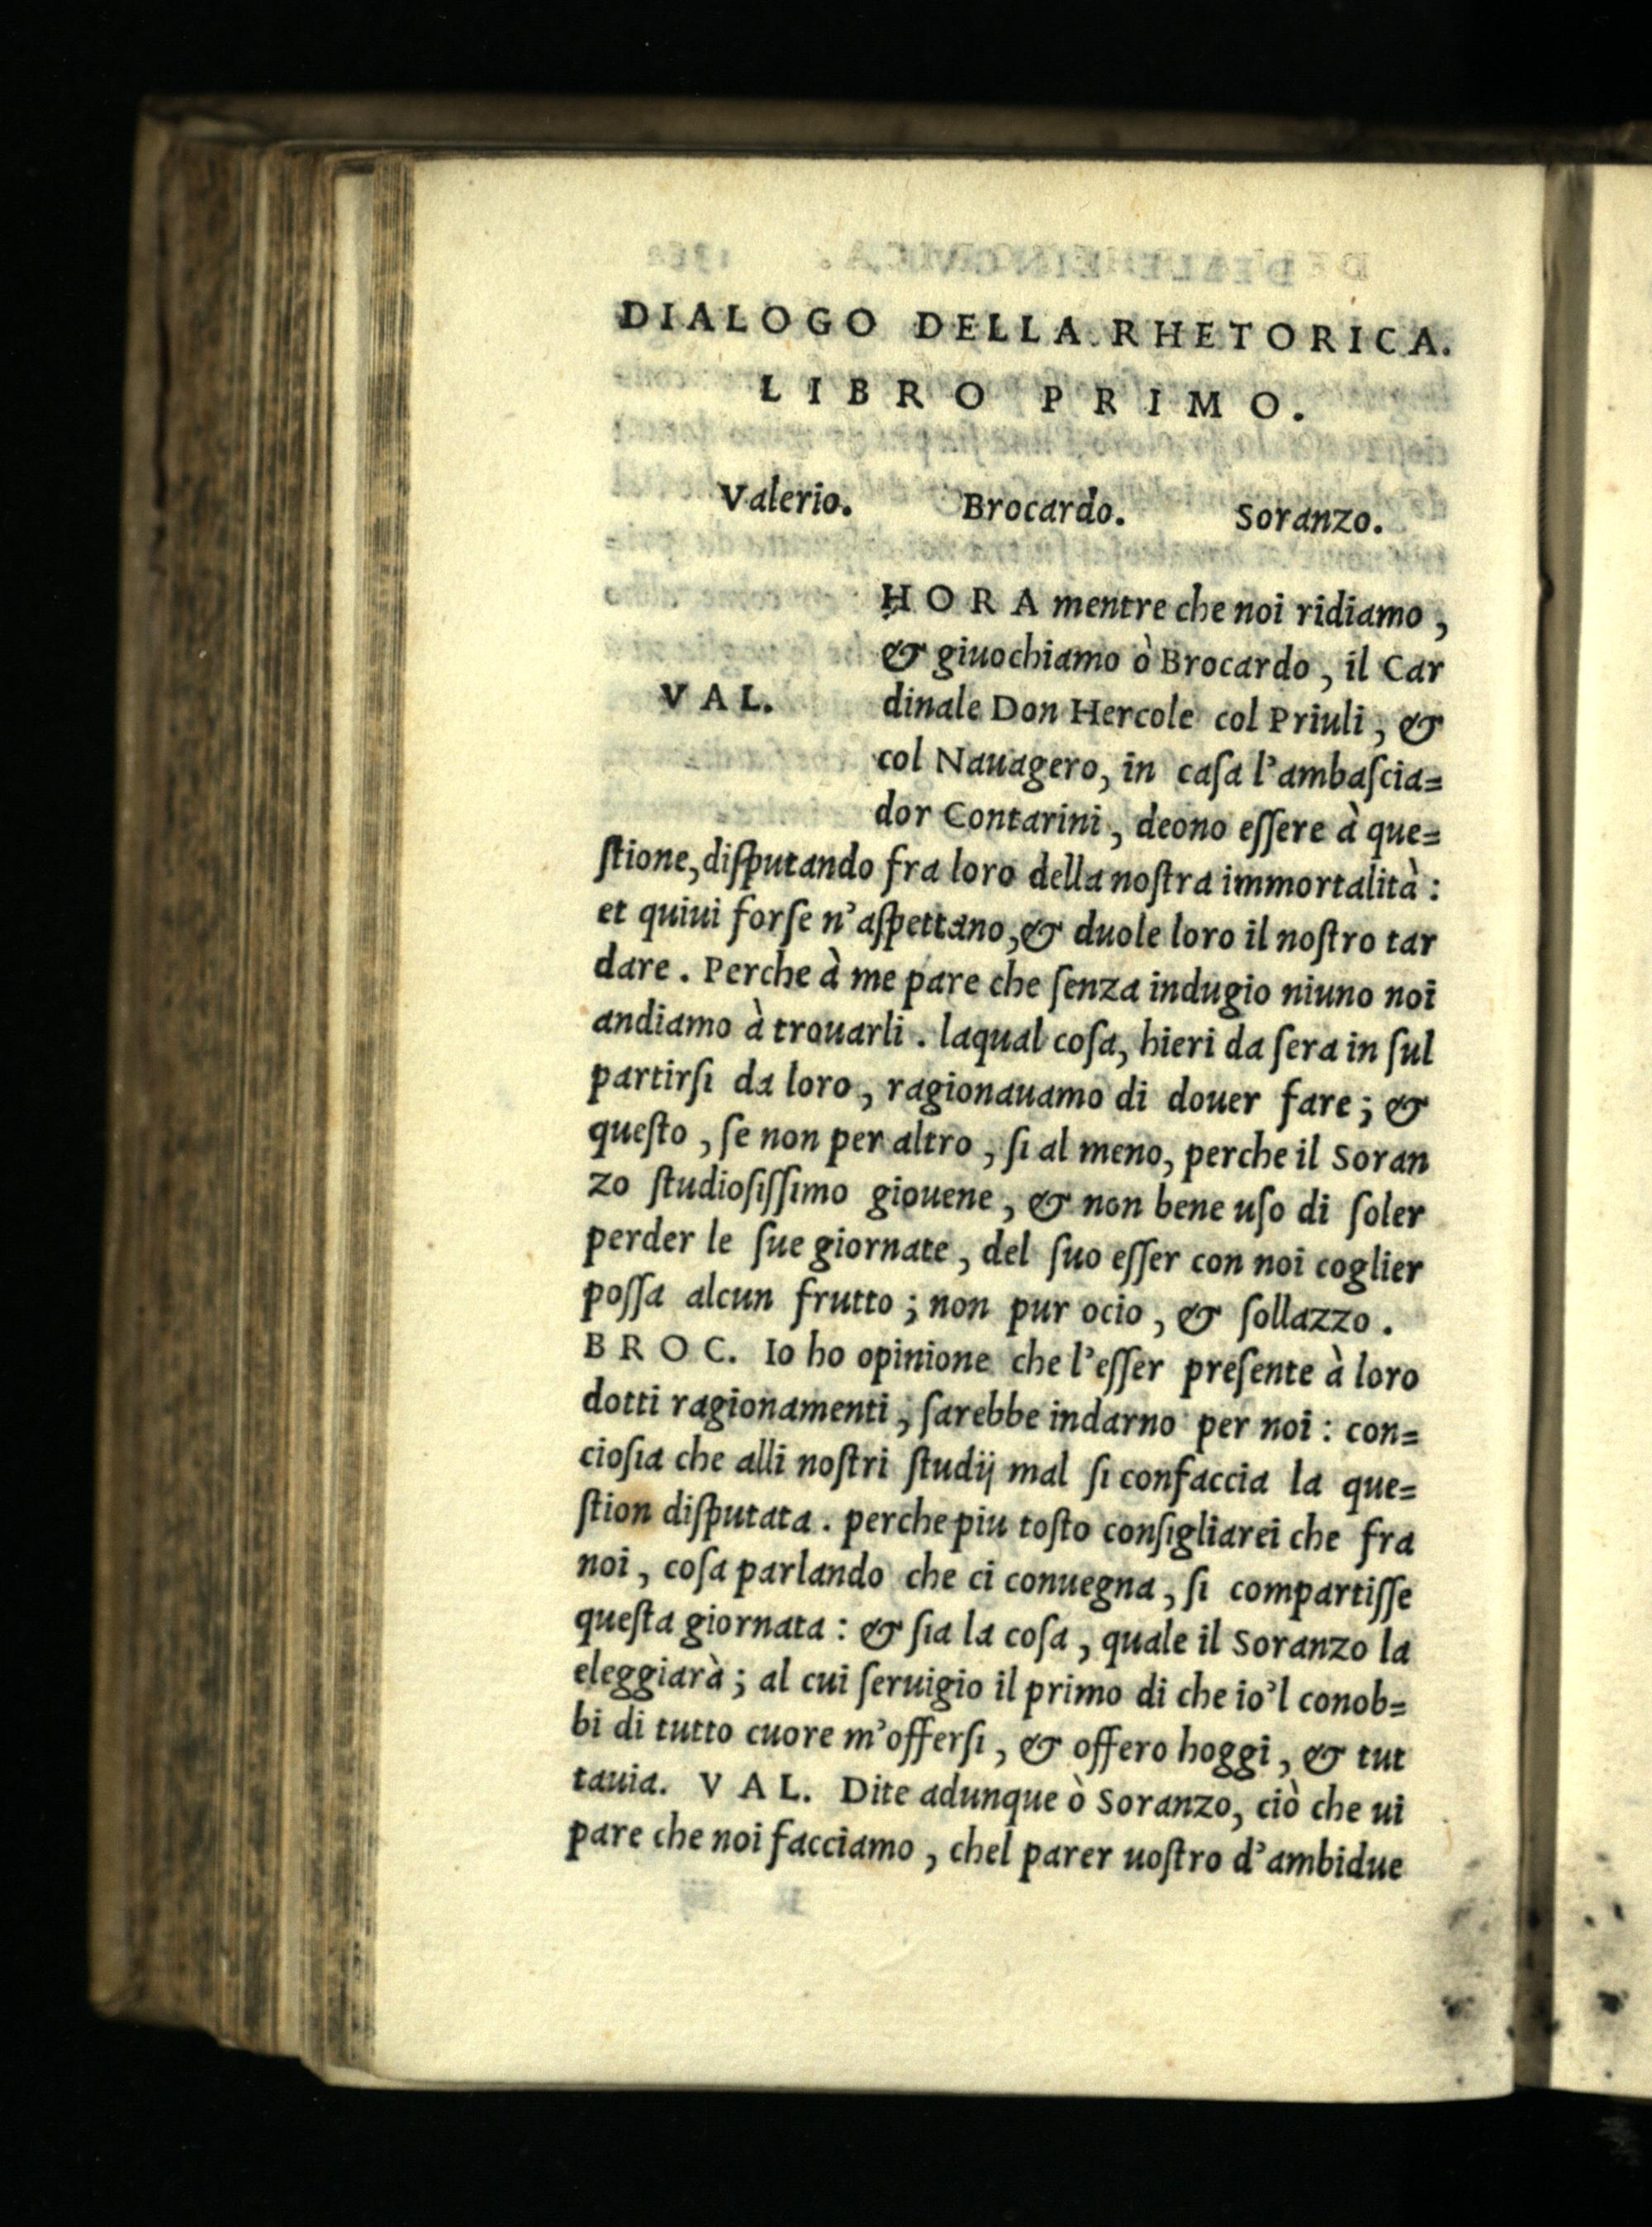 DIALOGO DELLA RHETORICA.
LIBRO PRIMO.
Valerio. Brocardo. Soranzo.
HORA mentre che noi ridiamo,
& giuochiamo ò Brocardo, il Car
VAL. dinale Don Hercole col Priuli, &
col Nauagero, in caſa l'ambaſcia=
dor Contarini, deono eſſere à que=
ſtione, diſputando fra loro della noſtra immortalità:
et quiui forſe n'aſpettano, & duole loro il noſtro tar
dare. Perche à me pare che ſenza indugio niuno noi
andiamo à trouarli. laqual coſa, hieri da ſera in ſul
partirſi da loro, ragionauamo di douer fare; &
queſto, ſe non per altro, ſi al meno, perche il Soran
zo ſtudioſiſſimo giouene, & non bene uſo di ſoler
perder le ſue giornate, del ſuo eſſer con noi coglier
poſſa alcun frutto; non pur ocio, & ſollazzo.
BROC. Io ho opinione che l'eſſer preſente à loro
dotti ragionamenti, ſarebbe indarno per noi: con=
cioſia che alli noſtri ſtudij mal ſi confaccia la que=
ſtion diſputata. perche piu toſto conſigliarei che fra
noi, coſa parlando che ci conuegna, ſi compartiſſe
queſta giornata: & ſia la coſa, quale il Soranzo la
eleggiarà; al cui ſeruigio il primo di che io'l conob=
bi di tutto cuore m'offerſi, & offero hoggi, & tut
tauia. VAL. Dite adunque ò Soranzo, ciò che ui
pare che noi facciamo, chel parer uoſtro d'ambidue